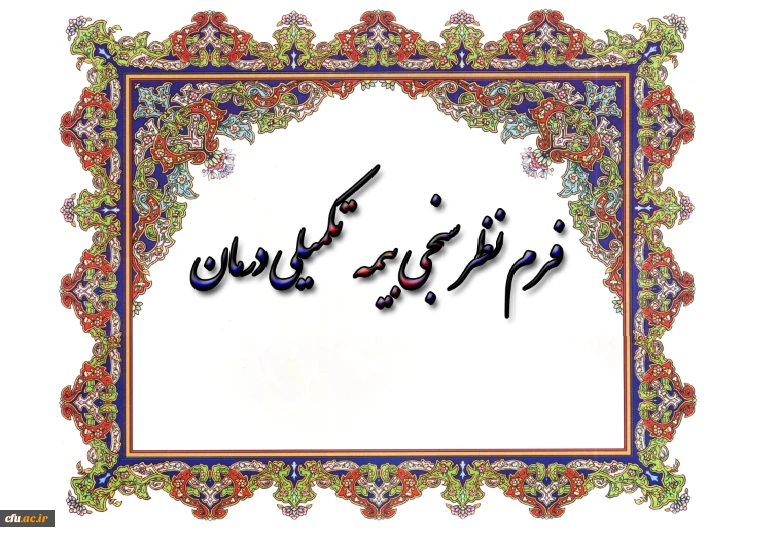 فرم نظر سنجی بیمه تکمیلی درمان
cfu.ac.ir